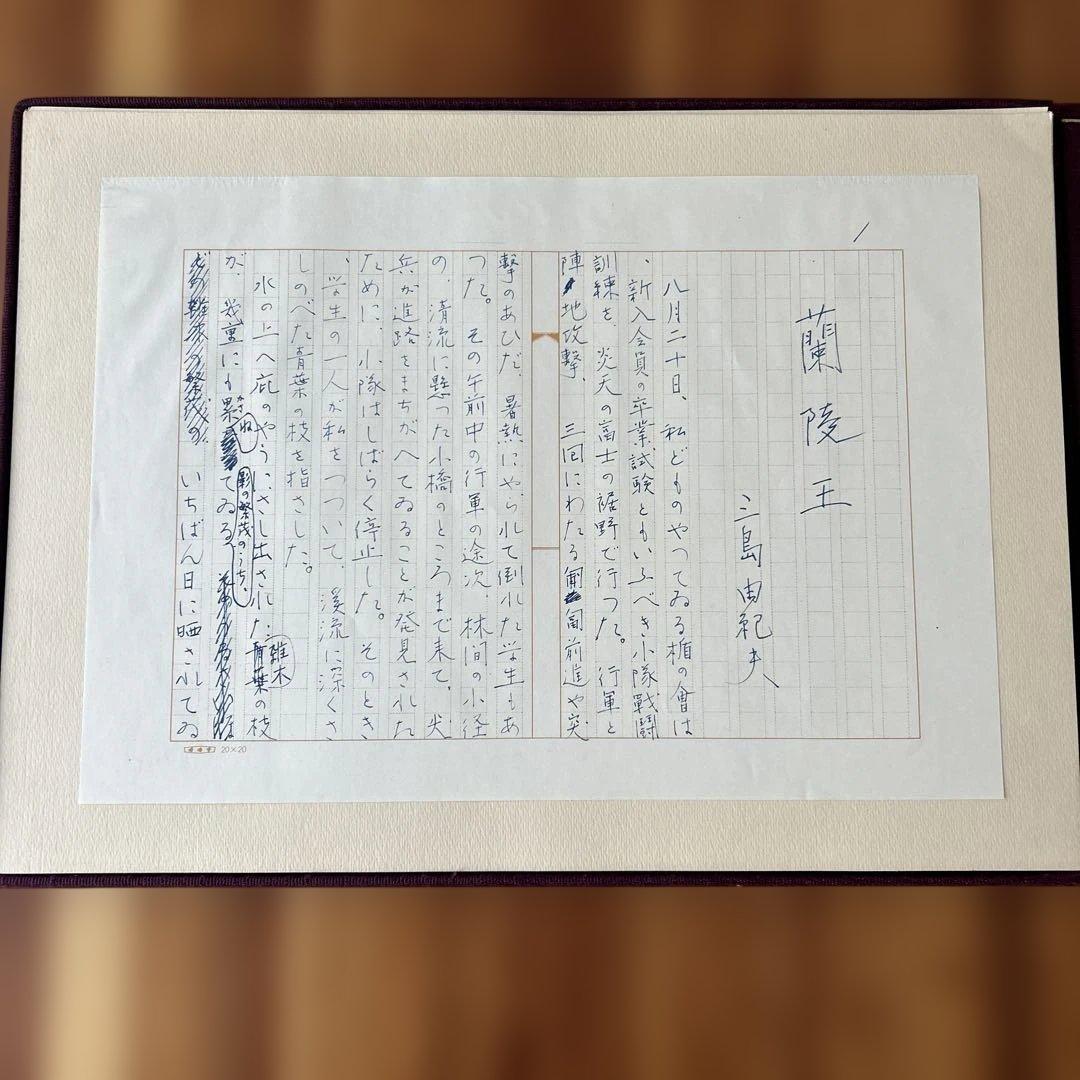 1
蘭陵王
三島由紀夫
八月二十日、私どものやつてゐる楯の會は
、新入会員の卒業試験ともいふべき小隊戦闘
訓練を、炎天の富士の裾野で行つた。行軍と
陣地攻撃、三回にわたる匍匐前進や突
撃のあひだ、暑熱にやられて倒れた学生もあ
つた。その午前中の行軍の途次、林間の小径
の、清流に懸つた小橋のところまで来て、尖
兵が進路をまちがへてゐることが発見された
ために、小隊はしばらく停止した。そのとき
、学生の一人が私をつついて、溪流に深くさ
しのべた青葉の枝を指さした。
水の上へ庇のやうにさし出された雑木青葉の枝
が、幾重にも累かさねてゐる影の繁茂のうち、
いちばん日に晒されてゐ
20×20